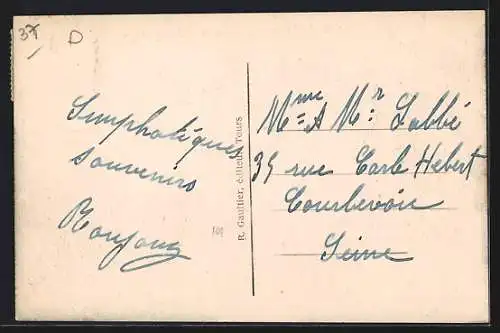 37
D
Simphatiques
souvenirs
R. Gaultier, éditeur, Tours
Mme & Mr Labbé
39 rue Carle Hebert
Courbevoie
Seine